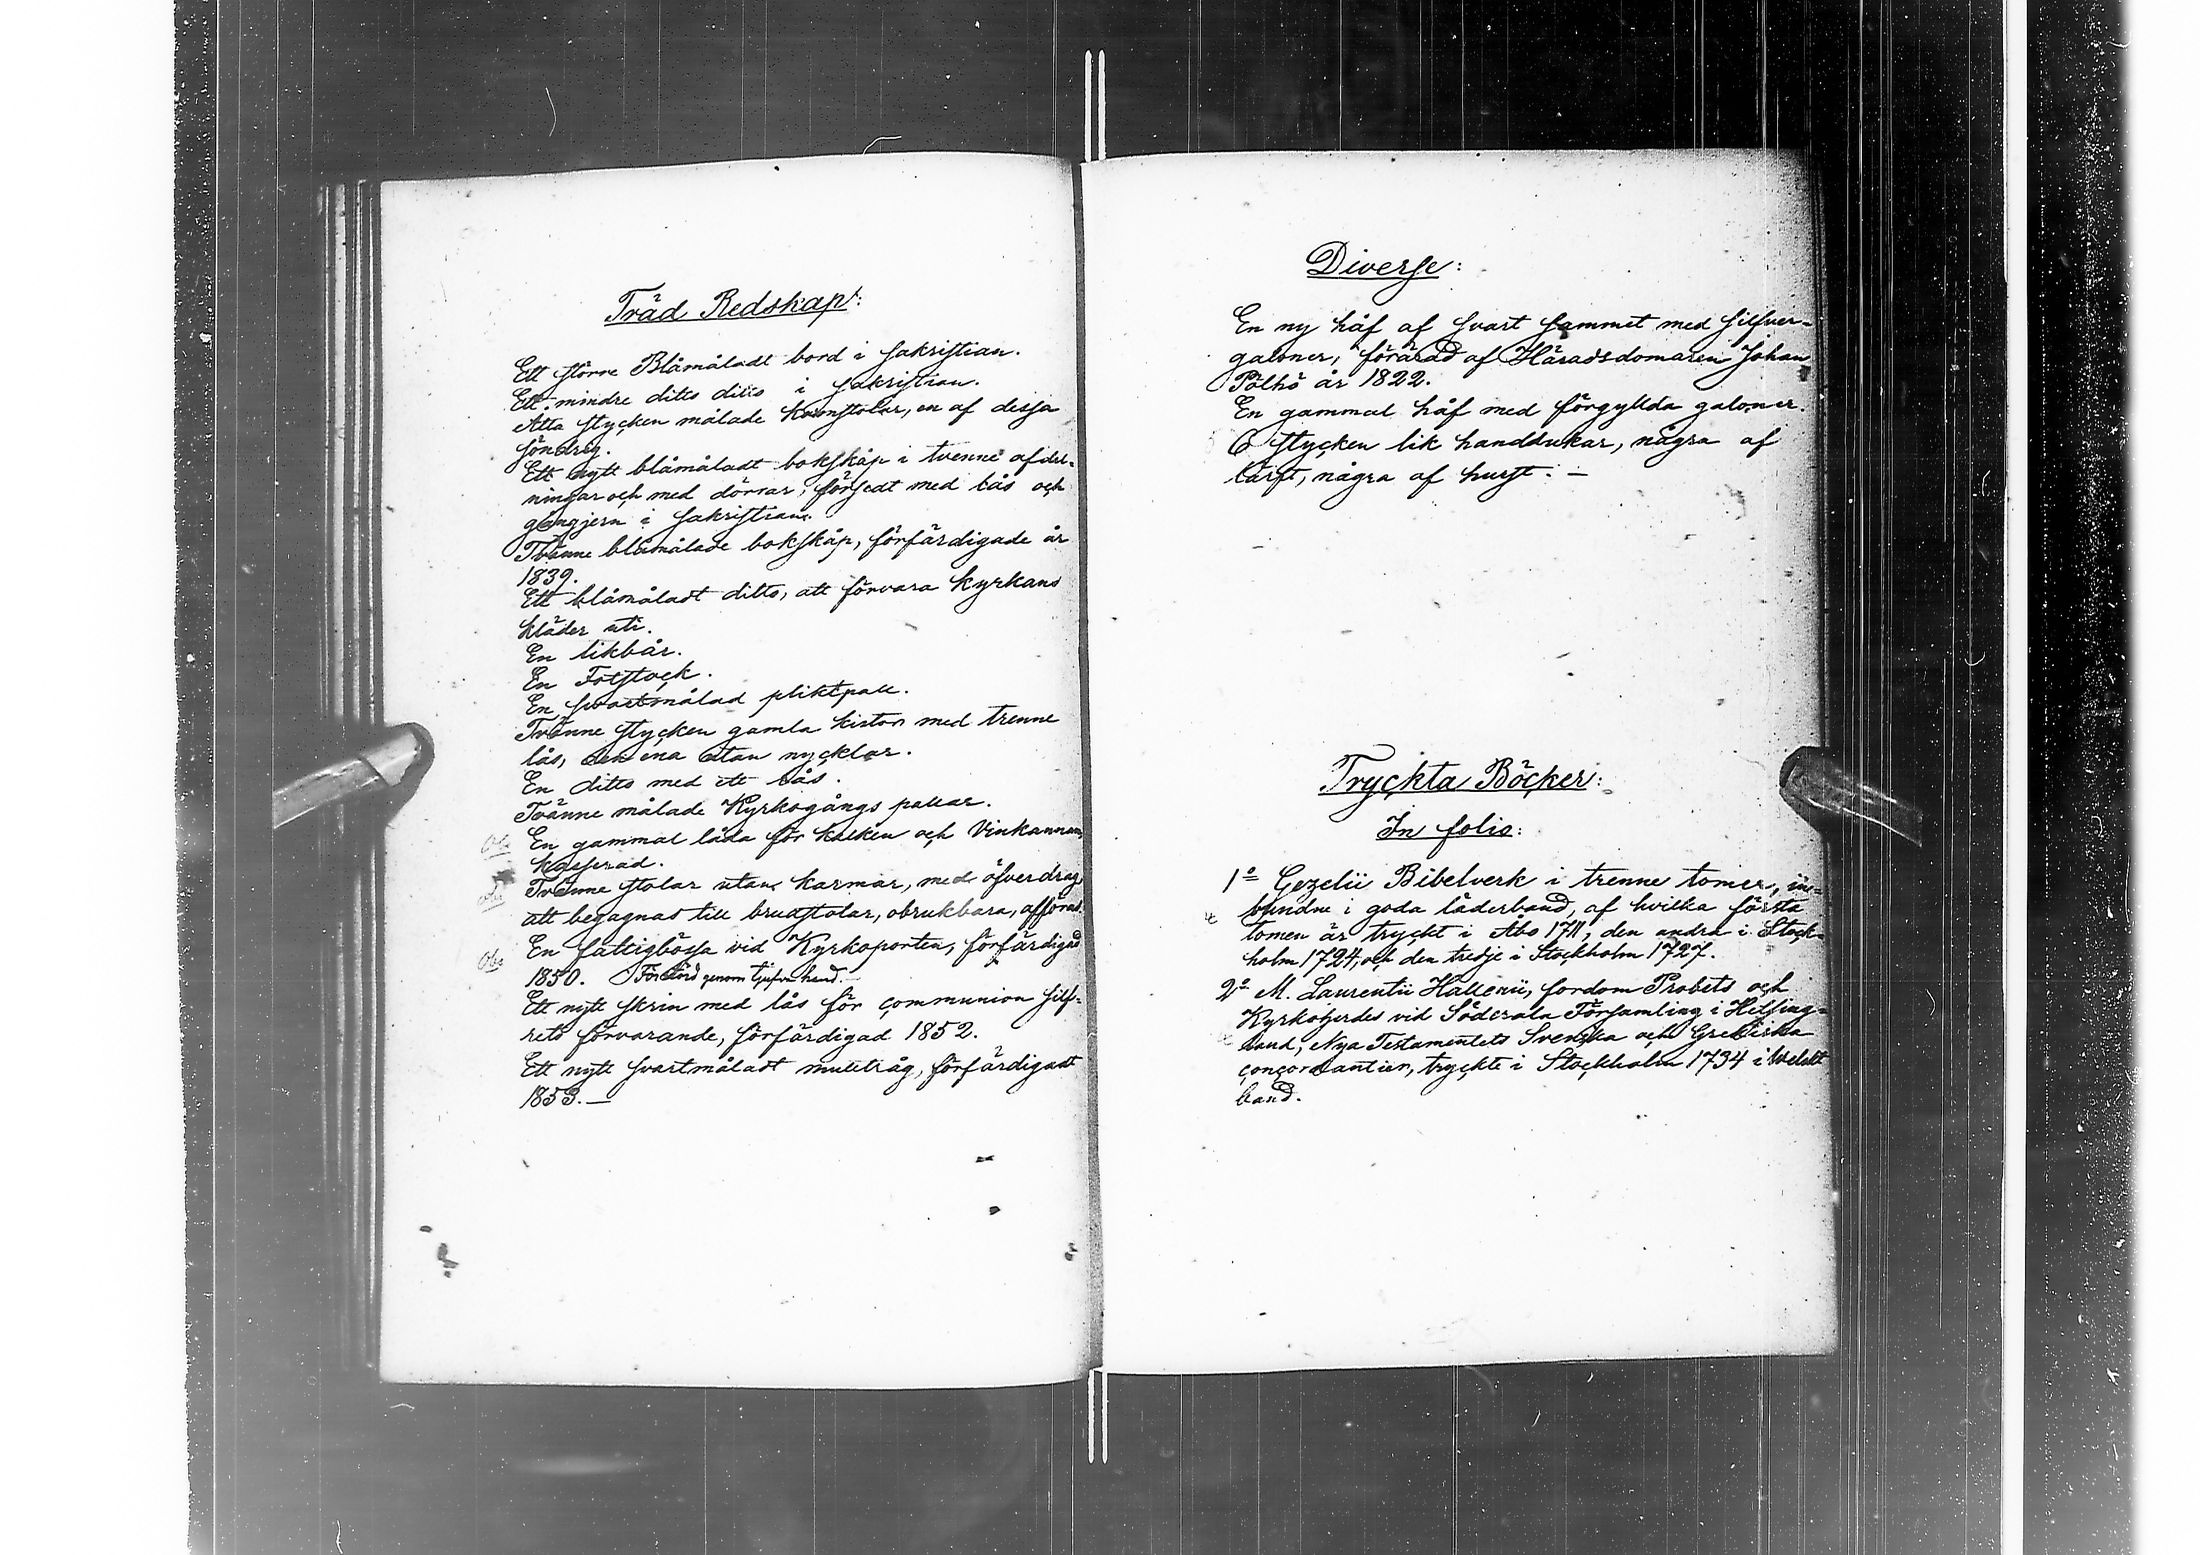 Träd Redskap:
Ett större Blåmåladt bord i sakristian.
Ett mindre ditto ditto i sakristian.
Åtta stycken målade karmstolar, en af dessa
söndrig.
Ett nytt blåmåladt bokskåp i tvenne afdel-
ningar och med dörrar, försedt med lås och
gångjern i sakristian.
Tvänne blåmålade bokskåp, förfärdigade år
1839.
Ett blåmåladt ditto, att förvara kyrkans
kläder uti.
En likbår.
En Fotstock.
En svartmålad pliktpall.
Tvänne stycken gamla kistor med trenne
lås, den ena utan nycklar.
En ditto med ett lås.
Tvänne målade Kyrkogångs pallar.
Obs En gammal låda för kalken och Vinkannan,
kasserad.
Obs Tvänne stolar utan karmar, med öfverdrag
att begagnas till brudstolar, obrukbara, afföras.
Obs En fattigbössa vid Kyrkoporten, förfärdigad
1850. Förstörd genom tjufvahand.
Ett nytt skrin med lås för communion silf-
rets förvarande, förfärdigad 1852.
Ett nytt svartmåladt mulltråg, förfärdigadt
1853. —
Diverse:
En ny håf af svart sammet med silfver-
galoner, förärad af Häradsdomaren Johan
Pölhö år 1822.
En gammal håf med förgyllda galoner.
6 stycken lik handdukar, några af
lärft, några af hurst. —
Tryckta Böcker:
In folio:
1º Gezelii Bibelverk i trenne tomer, in-
bundne i goda läderband, af hvilka första
tomen är tryckt i Åbo 1711, den andra i Stock-
holm 1724, och den tredje i Stockholm 1727.
2º M. Laurentii Hallenii, fordom Probsts och
Kyrkoherdes vid Söderala Församling i Helsing-
land, Nya Testamentets Svenska och Grekiska
concordantier, tryckte i Stockholm 1734 i
band.